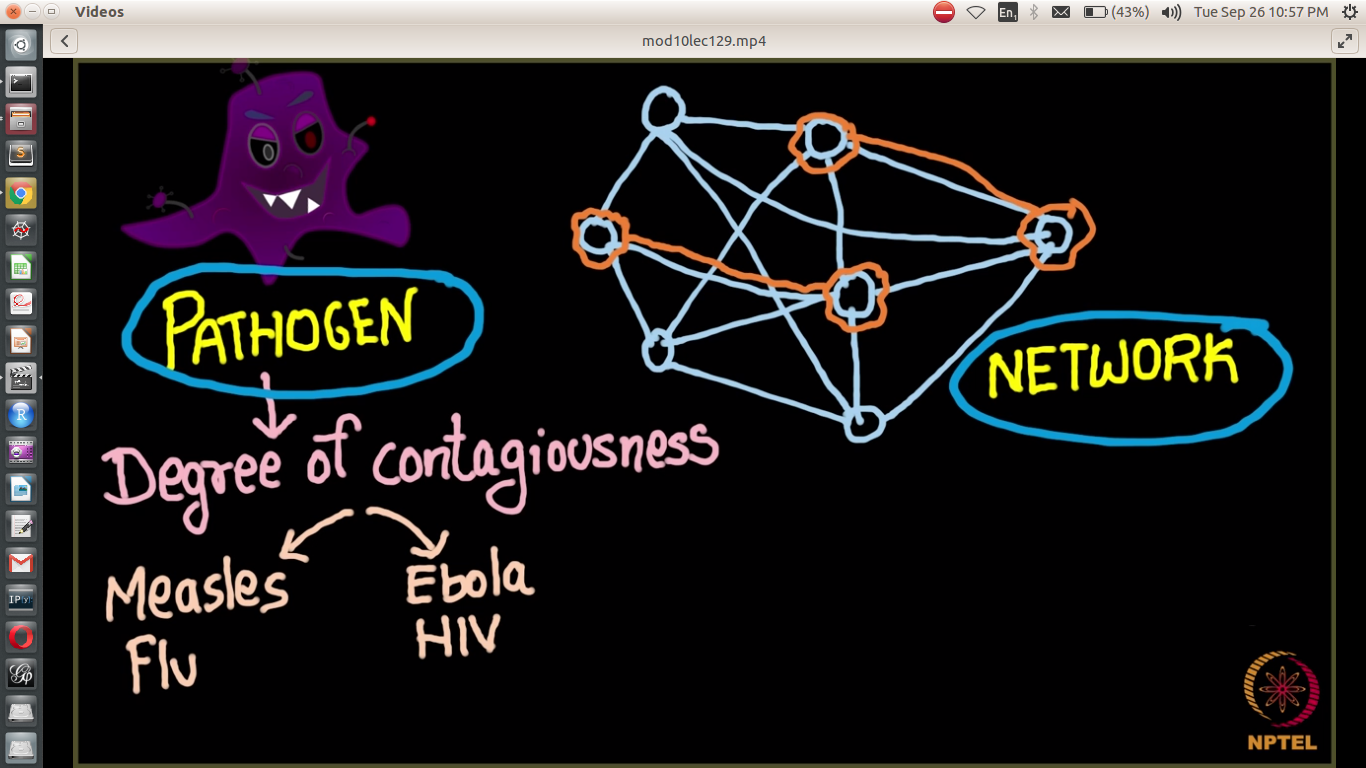 Videos
En1
(43%)
Tue Sep 26 10:57 PM
mod10lec129.mp4
PATHOGEN
NETWORK
Degree of contagiousness
Measles
Ebola
Flu
HIV
NPTEL